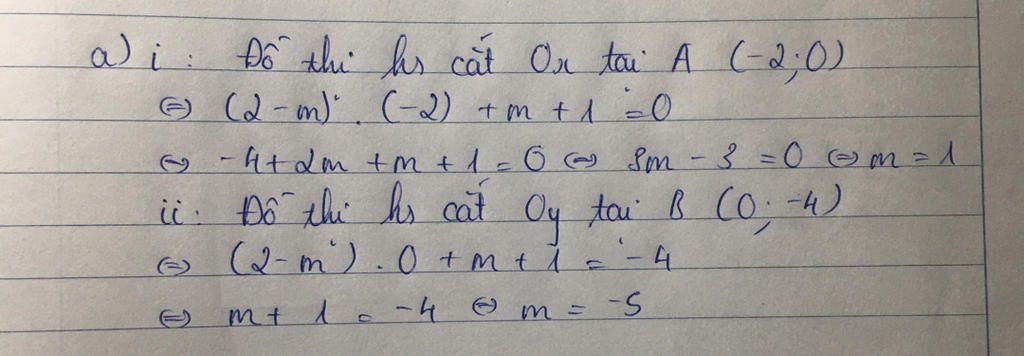 a) i : Đồ thị hs cắt Ox tại A (-2; 0)
⇔ (2 - m) . (-2) + m + 1 = 0
⇔ -4 + 2m + m + 1 = 0 ⇔ 3m - 3 = 0 ⇔ m = 1
ii. Đồ thị hs cắt Oy tại B (0; -4)
⇔ (2 - m) . 0 + m + 1 = -4
⇔ m + 1 = -4 ⇔ m = -5